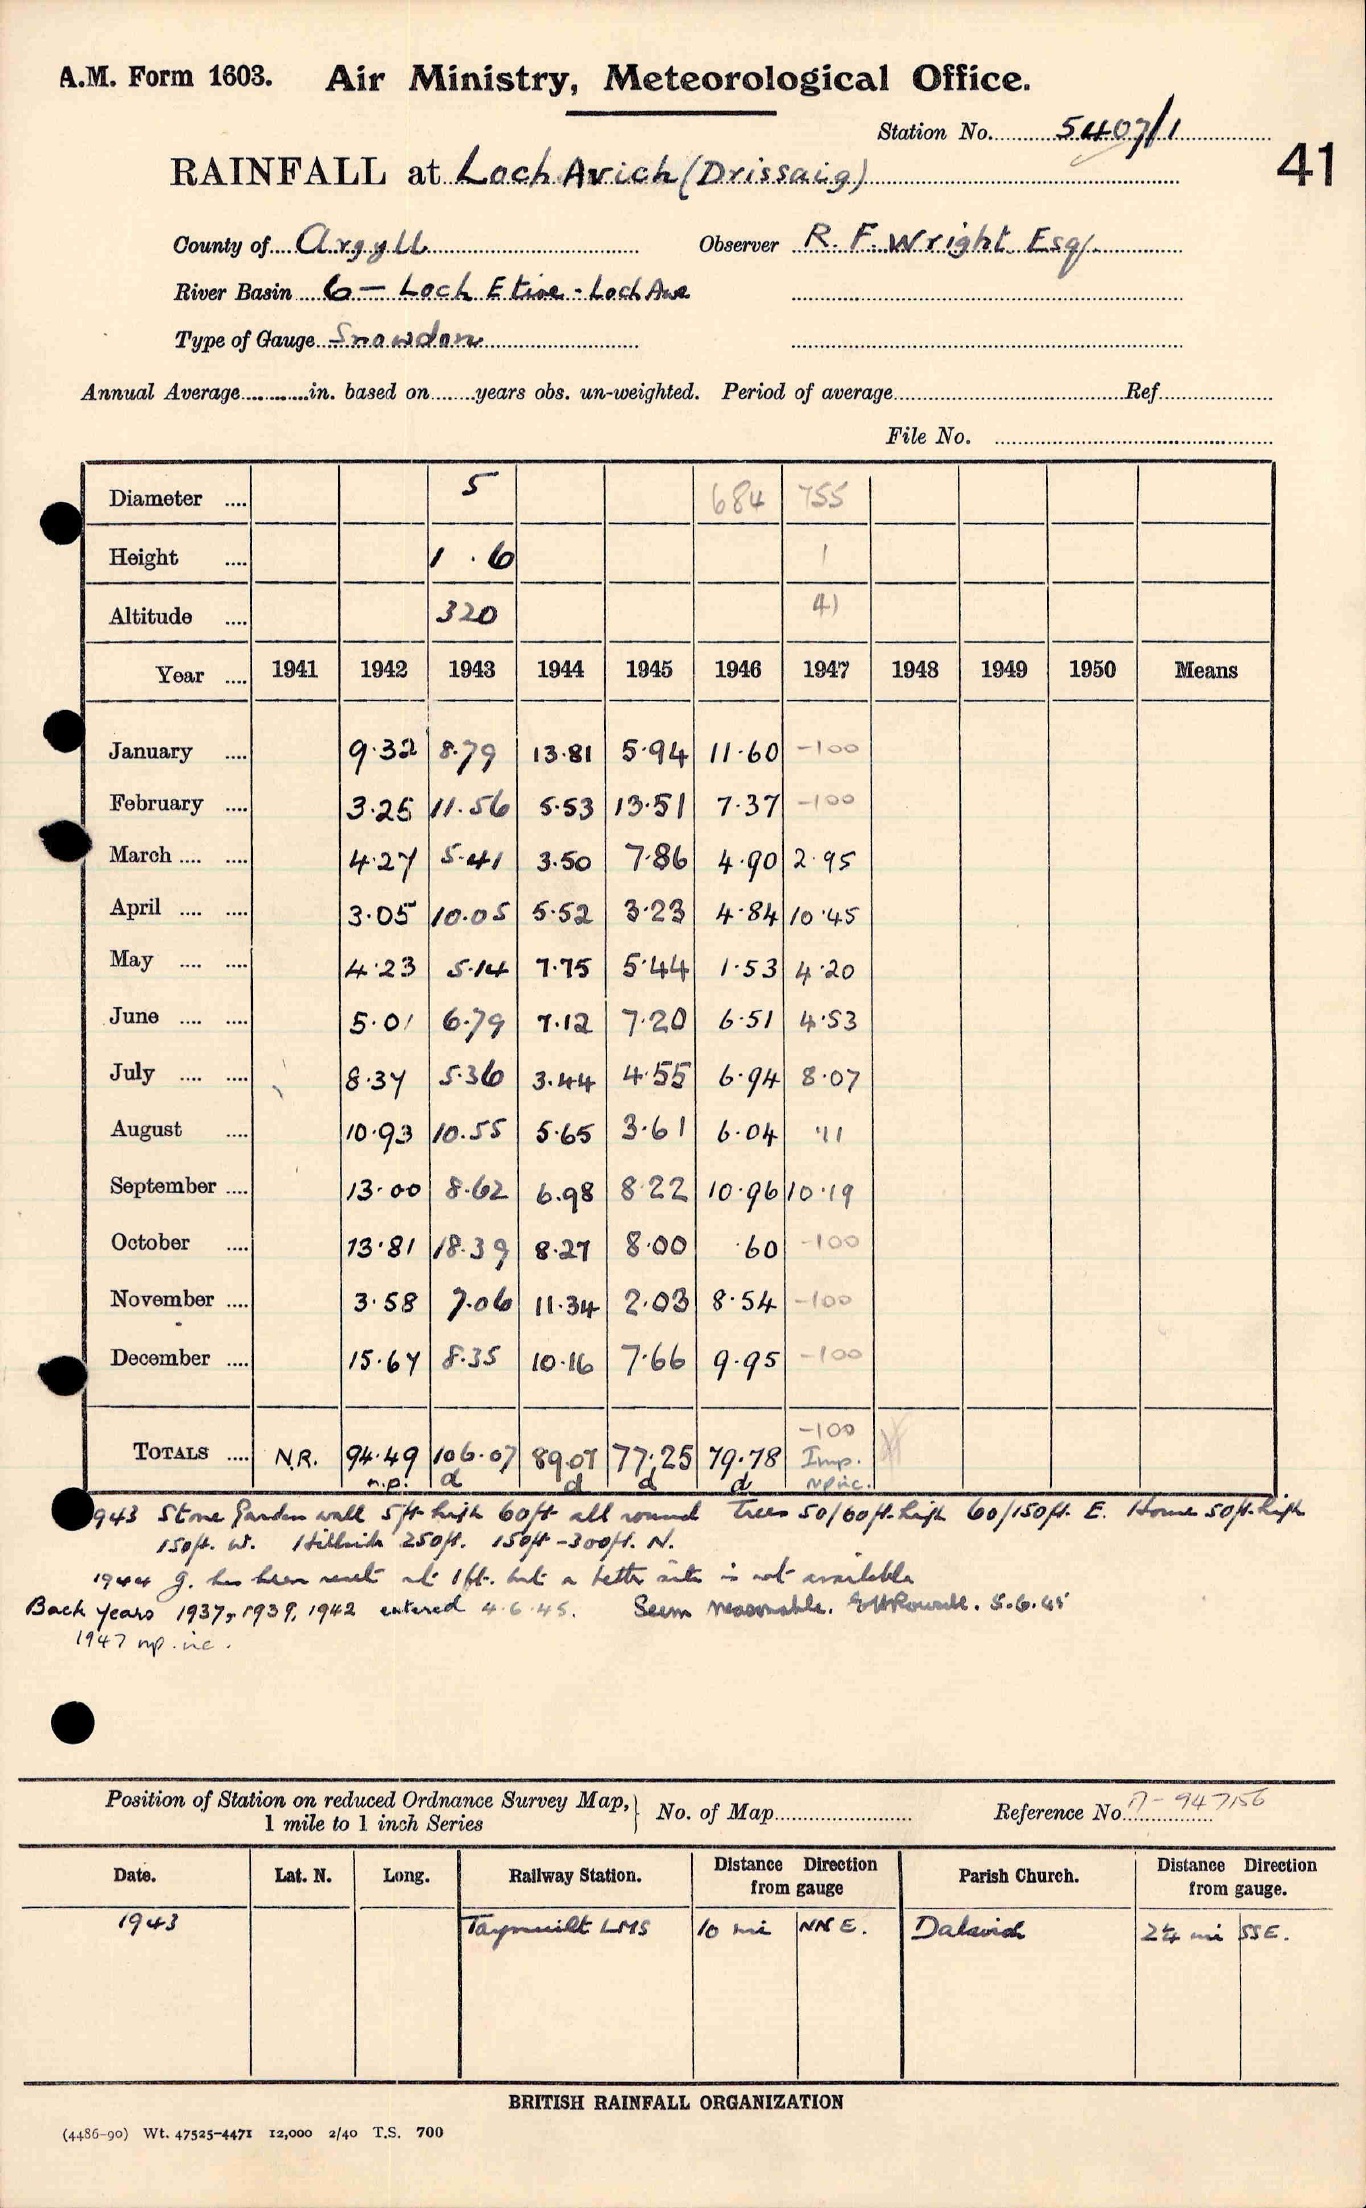 A.M. Form 1603. Air Ministry, Meteorological Office.
Station No. 5407/1
41
RAINFALL at Loch Avich (Drissaig)
County of Argyll Observer R. F. Wright Esq.
River Basin 6 — Loch Etive - Loch Awe
Type of Gauge Snowdon
Annual Average in. based on years obs. un-weighted. Period of average Ref
File No.
Diameter .... 5 684 755
Height .... 1 . 6 1
Altitude .... 320 41
Year .... 1941 1942 1943 1944 1945 1946 1947 1948 1949 1950 Means
January .... 9.32 8.79 13.81 5.94 11.60 -100
February .... 3.25 11.56 5.53 13.51 7.37 -100
March .... .... 4.27 5.41 3.50 7.86 4.90 2.95
April .... .... 3.05 10.05 5.52 3.23 4.84 10.45
May .... .... 4.23 5.14 7.75 5.44 1.53 4.20
June .... .... 5.01 6.79 7.12 7.20 6.51 4.53
July .... .... 8.37 5.36 3.44 4.55 6.94 8.07
August .... 10.93 10.55 5.65 3.61 6.04 .11
September .... 13.00 8.62 6.98 8.22 10.96 10.19
October .... 13.81 18.39 8.27 8.00 .60 -100
November .... 3.58 7.06 11.34 2.03 8.54 -100
December .... 15.67 8.35 10.16 7.66 9.95 -100
-100
TOTALS .... N.R. 94.49 106.07 89.07 77.25 79.78 Imp.
n.p. d d d d np inc.
1943 Stone Garden wall 5ft high 60ft all round Trees 50/60ft. high 60/150ft. E. House 50ft. high
150ft. W. Hillside 250ft. 150ft - 300ft. N.
1944 g. has been reset at 1ft. but a better site is not available
Back Years 1937, 1939, 1942 entered 4.6.45. Seem reasonable. 5.6.45
1947 np. inc.
Position of Station on reduced Ordnance Survey Map, 1 mile to 1 inch Series No. of Map Reference No. 947156
Date. Lat. N. Long. Railway Station. Distance from gauge Direction Parish Church. Distance from gauge. Direction
1943 Taynuilt LMS 10 mi NNE. Dalavich 2¼ mi SSE.
BRITISH RAINFALL ORGANIZATION
(4486-90) Wt. 47525-4471 12,000 2/40 T.S. 700